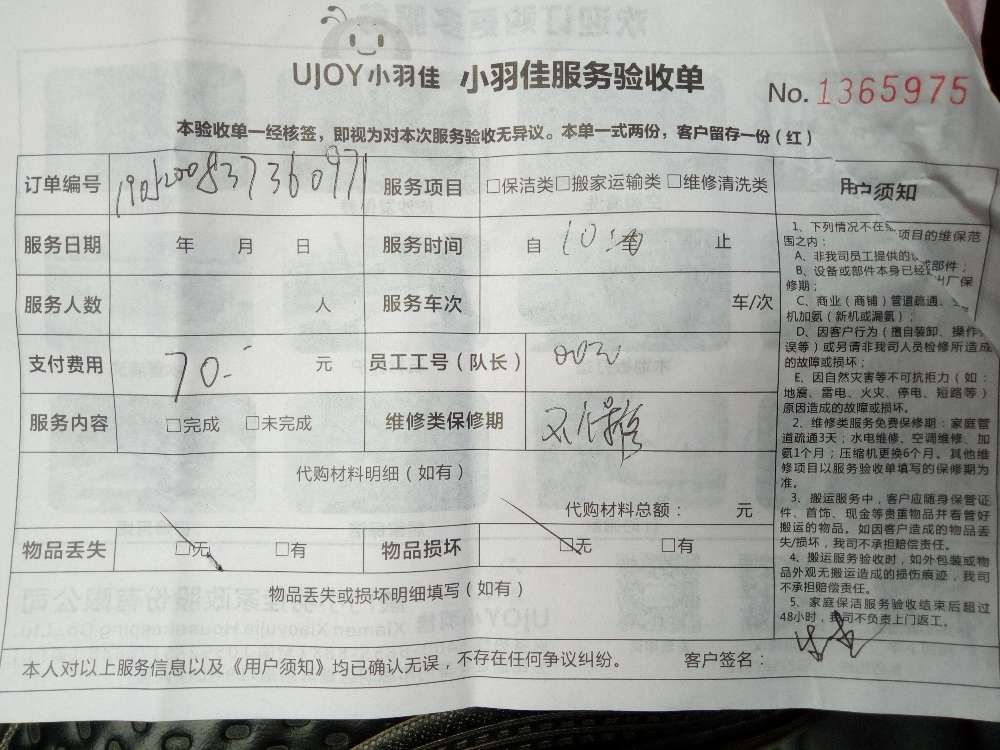 UJOY小羽佳 小羽佳服务验收单
No. 1365975
本验收单一经核签，即视为对本次服务验收无异议。本单一式两份，客户留存一份（红）
订单编号 服务项目 □保洁类□搬家运输类□维修清洗类
服务日期 年 月 日 服务时间 自 止
服务人数 人 服务车次 车/次
支付费用 70.- 元 员工工号（队长）
服务内容 □完成 □未完成 维修类保修期 不保修
代购材料明细（如有）
代购材料总额： 元
物品丢失 □无 □有 物品损坏 □无 □有
物品丢失或损坏明细填写（如有）
本人对以上服务信息以及《用户须知》均已确认无误，不存在任何争议纠纷。 客户签名：
用户须知
1、下列情况不在 项目的维保范
围之内：
A、非我司员工提供的 或部件；
B、设备或部件本身已经 出厂保
修期；
C、商业（商铺）管道疏通、
机加氨（新机或漏氨）；
D、因客户行为（擅自装卸、操作
误等）或另请非我司人员检修所造成
的故障或损坏；
E、因自然灾害等不可抗拒力（如：
地震、雷电、火灾、停电、短路等）
原因造成的故障或损坏。
2、维修类服务免费保修期：家庭管
道疏通3天；水电维修、空调维修、加
氨1个月；压缩机更换6个月。其他维
修项目以服务验收单填写的保修期为
准。
3、搬运服务中，客户应随身保管证
件、首饰、现金等贵重物品并看管好
搬运的物品。如因客户造成的物品丢
失/损坏，我司不承担赔偿责任。
4、搬运服务验收时，如外包装或物
品外观无搬运造成的损伤痕迹，我司
不承担赔偿责任。
5、家庭保洁服务验收结束后超过
48小时，我司不负责上门返工。